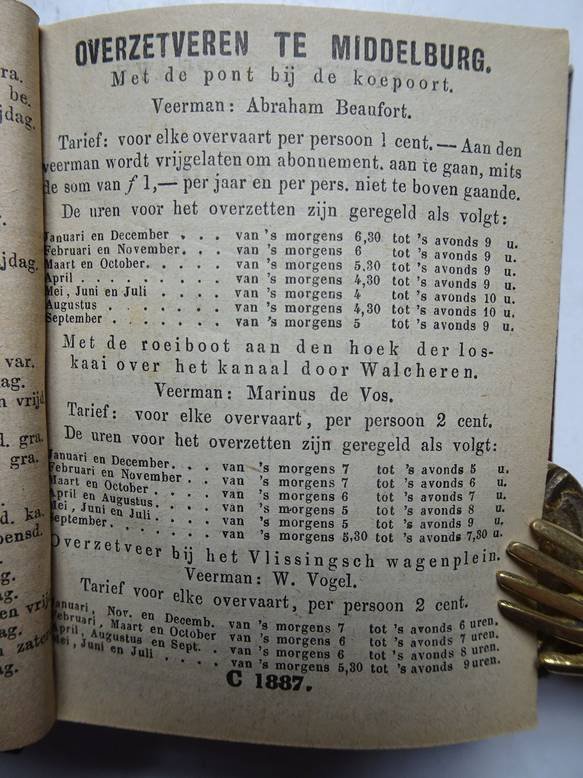 OVERZETVEREN TE MIDDELBURG.
Met de pont bij de koepoort.
Veerman: Abraham Beaufort.
Tarief: voor elke overvaart per persoon 1 cent. — Aan den
veerman wordt vrijgelaten om abonnement. aan te gaan, mits
de som van ƒ 1,— per jaar en per pers. niet te boven gaande.
De uren voor het overzetten zijn geregeld als volgt:
Januari en December . . . van 's morgens 6,30 tot 's avonds 9 u.
Februari en November. . . van 's morgens 6 tot 's avonds 9 u.
Maart en October. . . . van 's morgens 5,30 tot 's avonds 9 u.
April . . . . . . . . van 's morgens 4,30 tot 's avonds 9 u.
Mei, Juni en Juli . . . . van 's morgens 4 tot 's avonds 10 u.
Augustus . . . . . . . van 's morgens 4,30 tot 's avonds 10 u.
September . . . . . . van 's morgens 5 tot 's avonds 9 u.
Met de roeiboot aan den hoek der los-
kaai over het kanaal door Walcheren.
Veerman: Marinus de Vos.
Tarief: voor elke overvaart, per persoon 2 cent.
De uren voor het overzetten zijn geregeld als volgt:
Januari en December. . . . van 's morgens 7 tot 's avonds 5 u.
Februari en November . . . van 's morgens 7 tot 's avonds 6 u.
Maart en October . . . . van 's morgens 6 tot 's avonds 7 u.
April en Augustus. . . . . van 's morgens 5 tot 's avonds 8 u.
Mei, Juni en Juli . . . . . van 's morgens 5 tot 's avonds 9 u.
September. . . . . . . van 's morgens 5,30 tot 's avonds 7,30 u.
Overzetveer bij het Vlissingsch wagenplein.
Veerman: W. Vogel.
Tarief voor elke overvaart, per persoon 2 cent.
Januari, Nov. en Decemb. van 's morgens 7 tot 's avonds 6 uren.
Februari, Maart en October van 's morgens 6 tot 's avonds 7 uren.
April, Augustus en Sept. . van 's morgens 6 tot 's avonds 8 uren.
Mei, Juni en Juli . . . . . van 's morgens 5,30 tot 's avonds 9 uren.
C 1887.